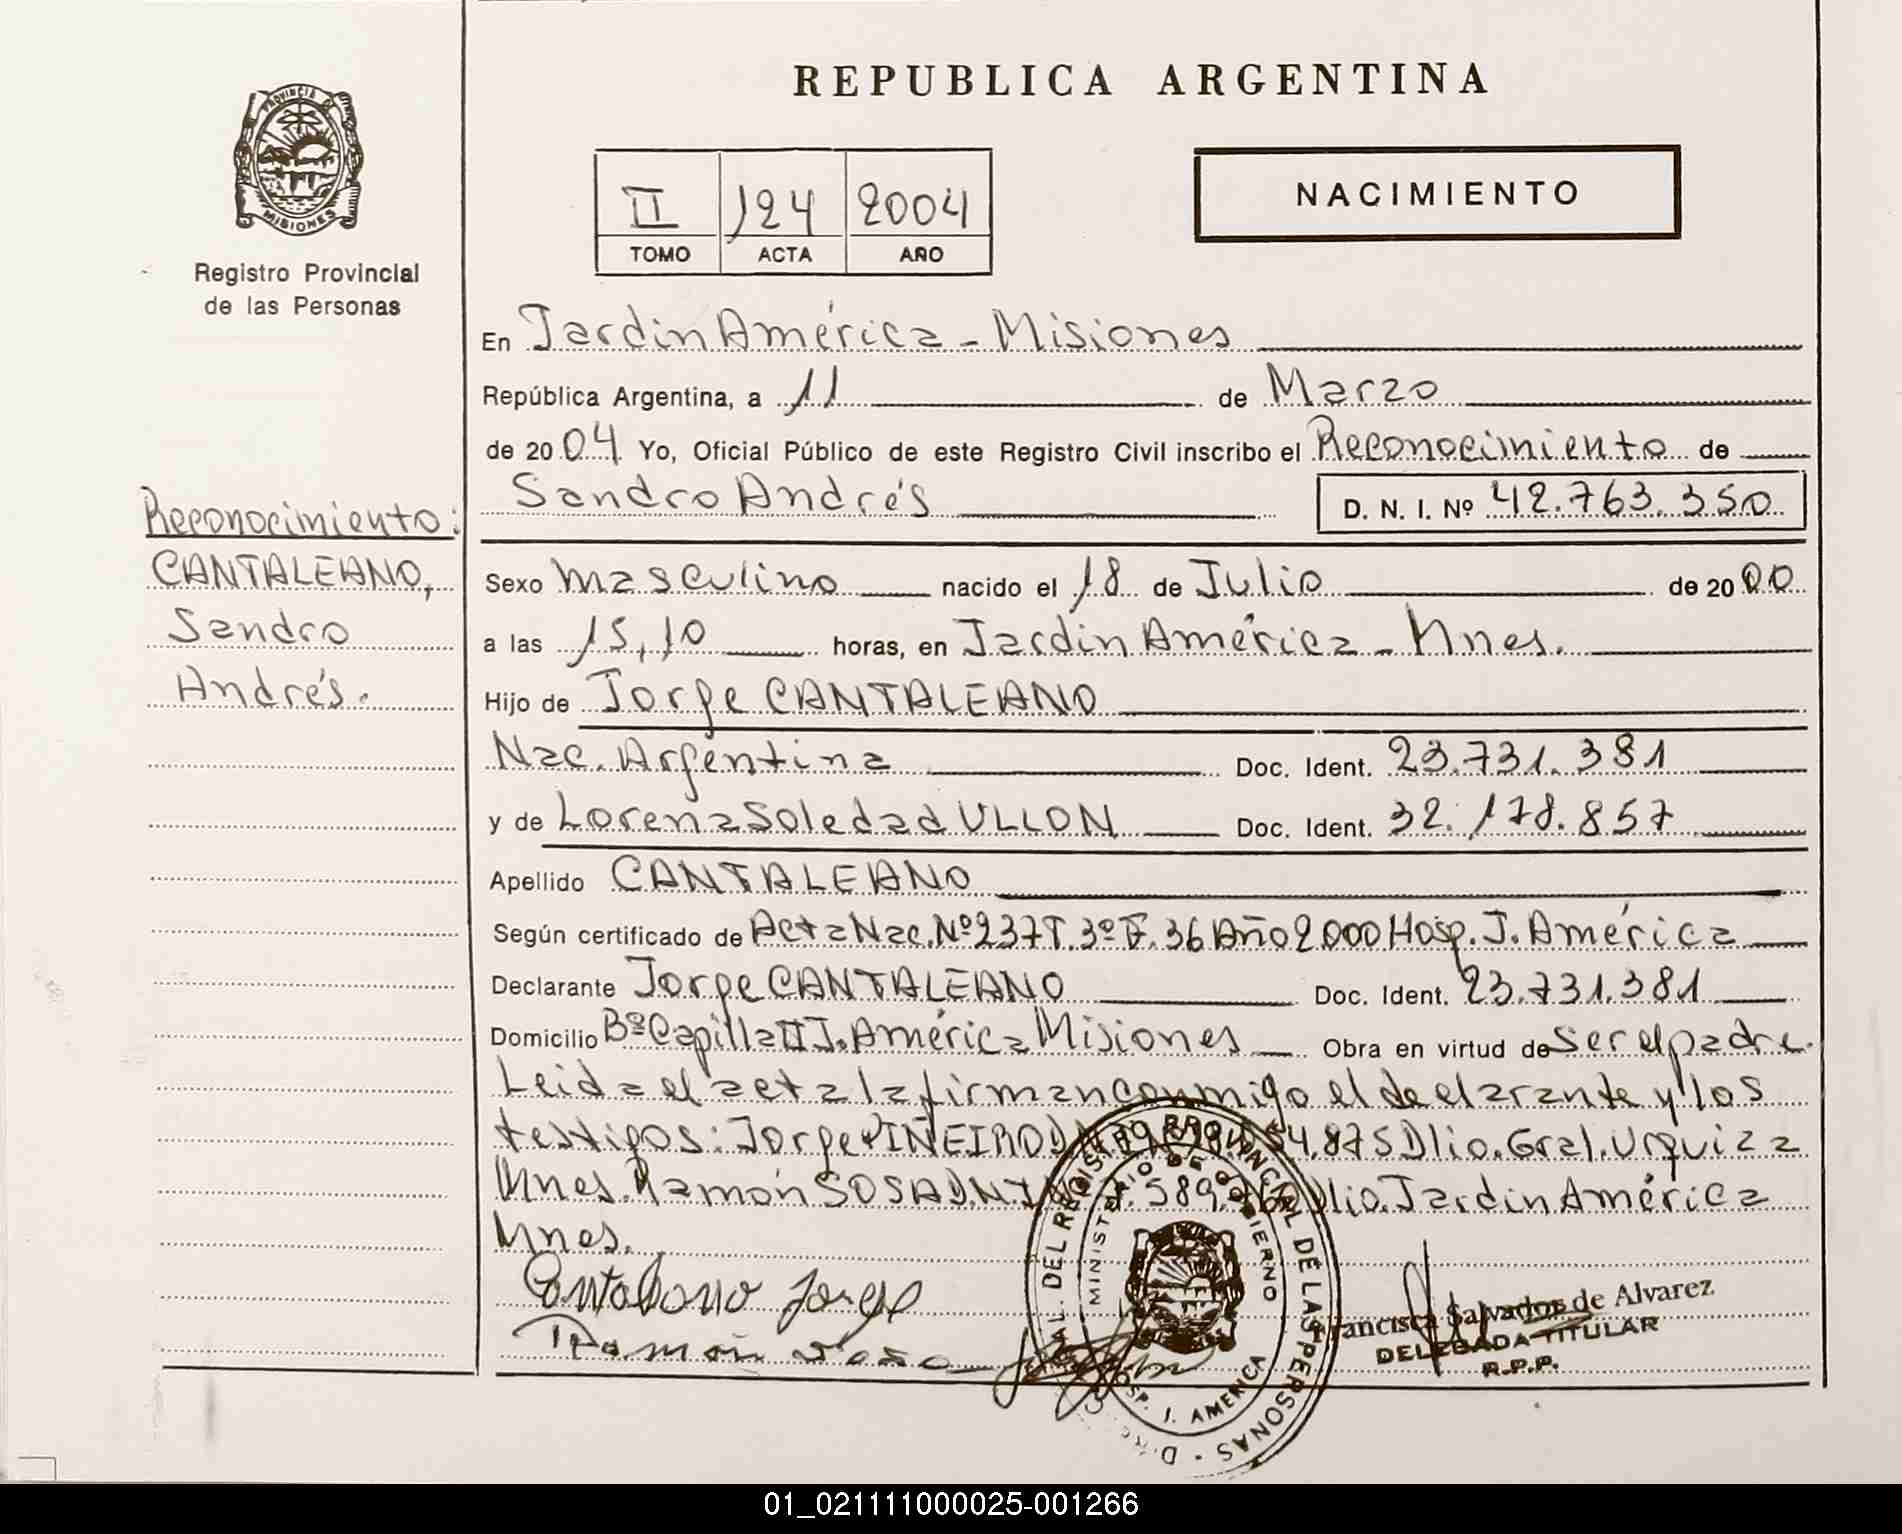 REPUBLICA ARGENTINA
PROVINCIA DE MISIONES
Registro Provincial
de las Personas
II 124 2004
TOMO ACTA AÑO
NACIMIENTO
En Jardin América - Misiones
República Argentina, a 11 de Marzo
de 2004 Yo, Oficial Público de este Registro Civil inscribo el Reconocimiento de
Sandro Andrés D. N. I. Nº 42.763.350
Reconocimiento:
CANTALEANO,
Sandro
Andrés.
Sexo Masculino nacido el 18 de Julio de 2000
a las 15,10 horas, en Jardin América - Mnes.
Hijo de Jorge CANTALEANO
Nac. Argentina Doc. Ident. 23.731.381
y de Lorena Soledad ULLON Doc. Ident. 32.178.857
Apellido CANTALEANO
Según certificado de Acta Nac. Nº 237 T. 3º F. 36 Año 2000 Hosp. J. América
Declarante Jorge CANTALEANO Doc. Ident. 23.731.381
Domicilio Bº Capilla II J. América Misiones Obra en virtud de ser el padre.
Leida el acta la firman conmigo el declarante y los
testigos: Jorge PIÑEIRO 4.875 Dlio. Gral. Urquiza
Mnes. Ramón SOSA DNI 589. Dlio. Jardin América
Mnes.
Cantaleano Jorge
Ramón Sosa
DEL REGISTRO PROVINCIAL DE LAS PERSONAS
MINISTERIO DE GOBIERNO
HOSP. J. AMERICA
Francisca Salvador de Alvarez
DELEGADA TITULAR
R.P.P.
01_021111000025-001266